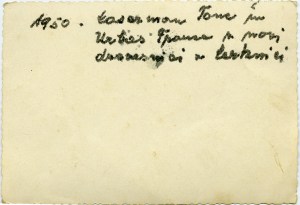 1950. Laserman Tone in
Urbas Franc v novi
drvarnici v Cerknici